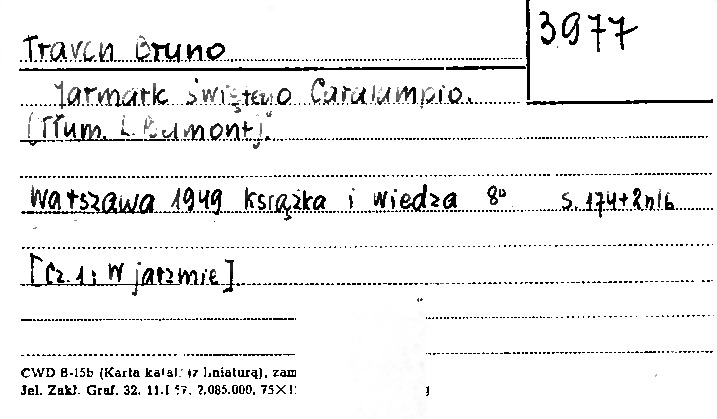 Traven Bruno
3977
Jarmark świętego Caralampio.
[Tłum. L. Belmont].
Warszawa 1949 Książka i Wiedza 8° s. 174+2nlb
[Cz. 1: W jarzmie]
CWD B-15b (Karta katal. (z liniaturą), zam
Jel. Zakł. Graf. 32. 11.I 57. 2.085.000, 75×1